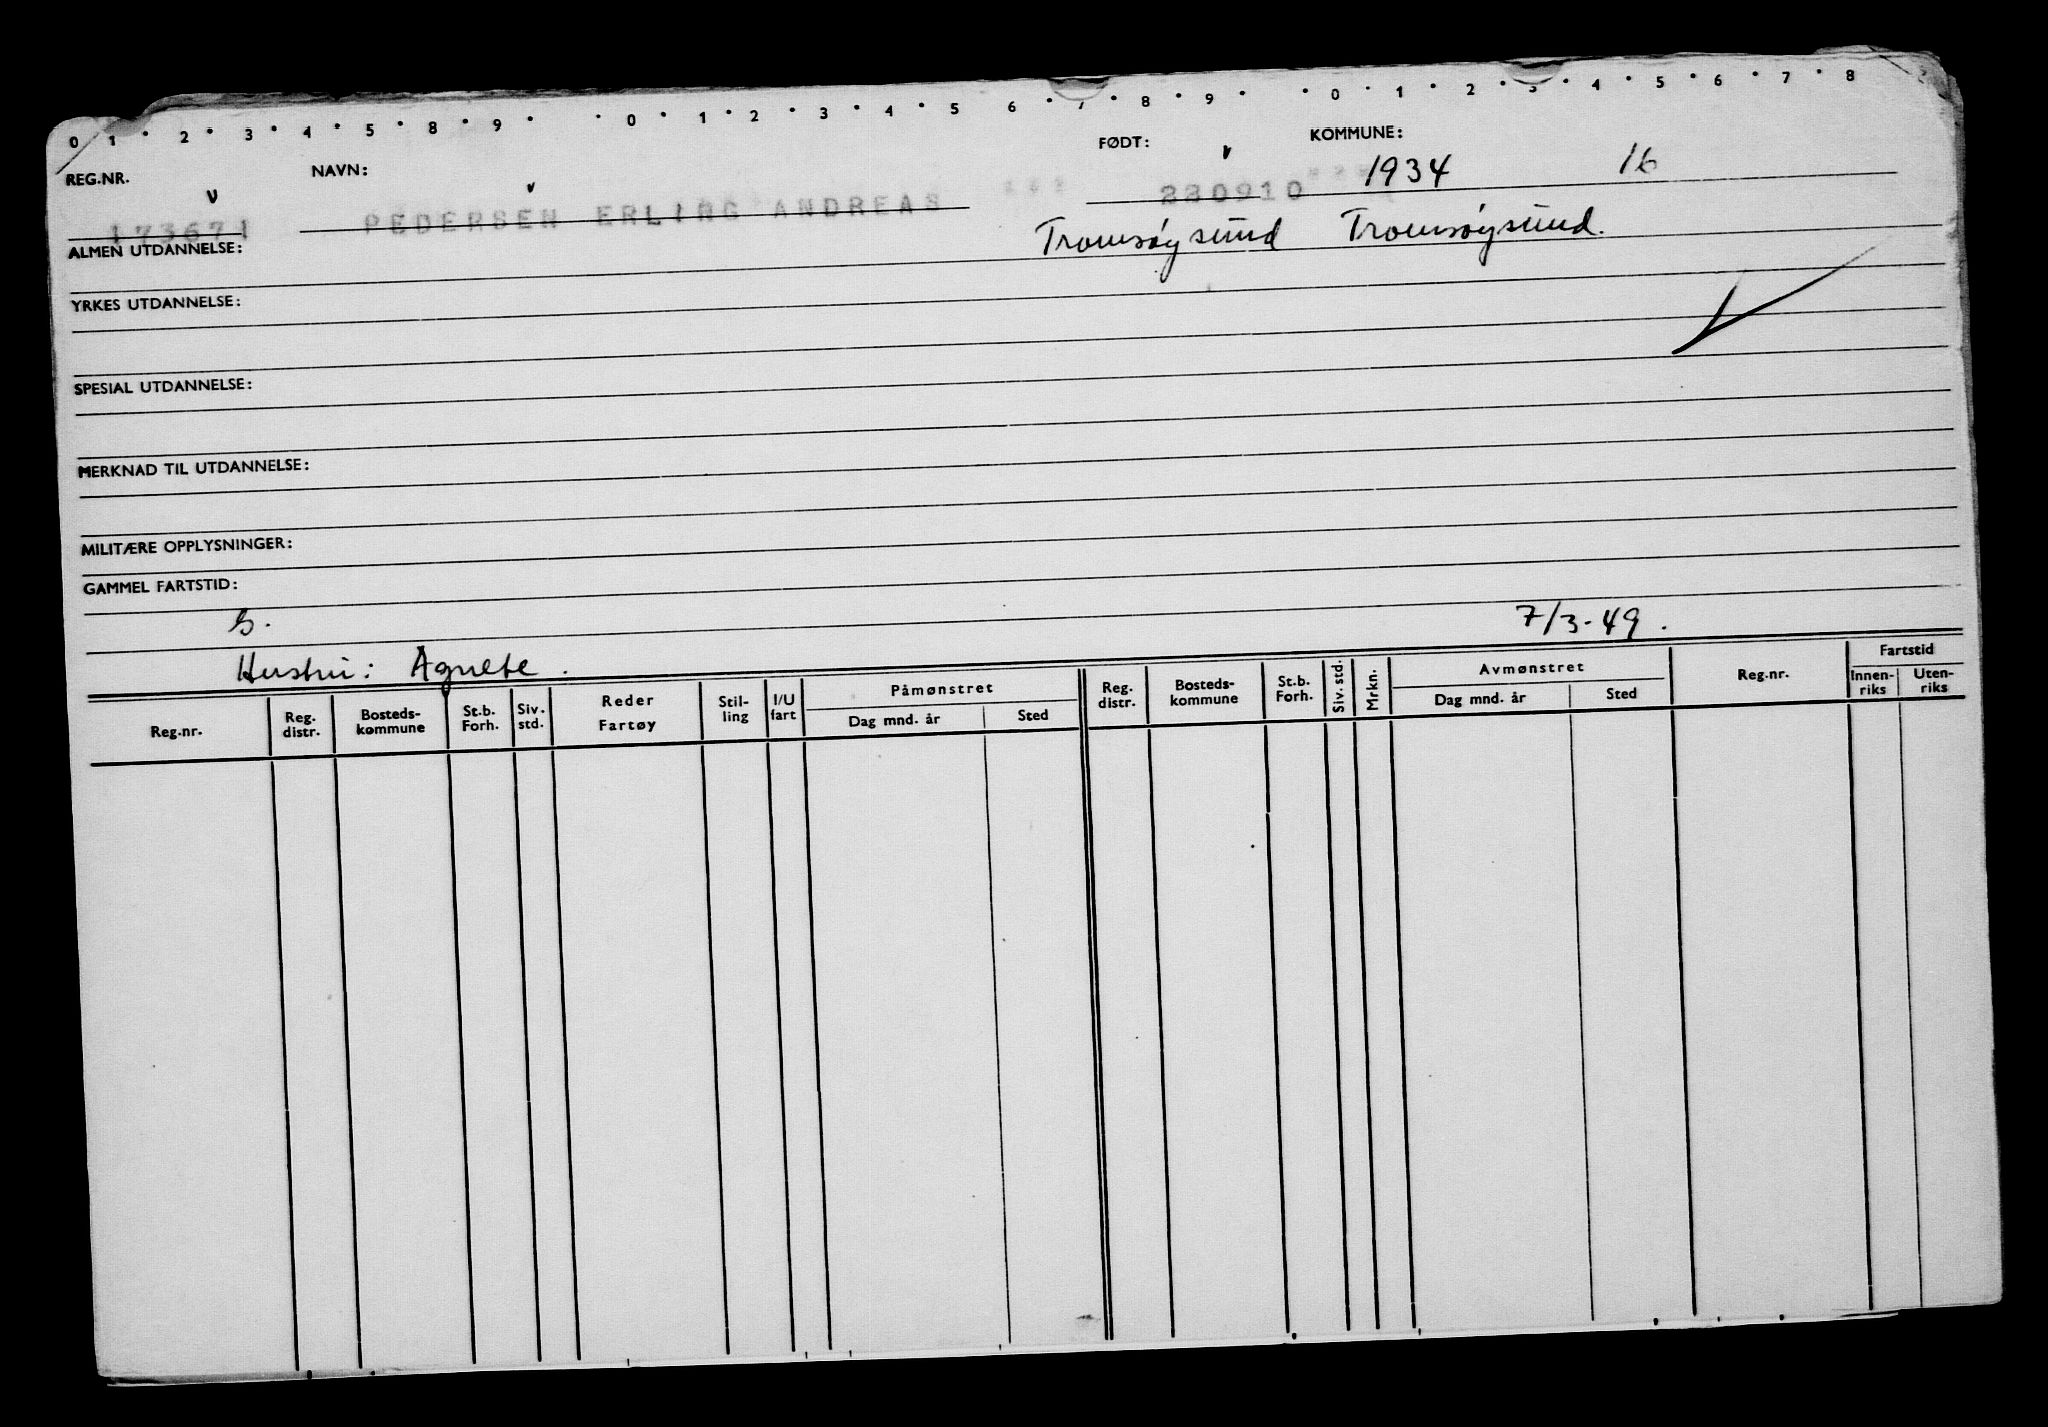 0 1 · 2 · 3 · 4 · 5 · 8 · 9 · · 0 · 1 · 2 · 3 · 4 · 5 6 · 7 · 8 · 9 · · 0 · 1 · 2 · 3 · 4 · 5 · 6 · 7 · 8
REG.NR. NAVN: FØDT: KOMMUNE:
173671 PEDERSEN ERLING ANDREAS *** 230910 *** 1934 16
ALMEN UTDANNELSE: Tromsøysund Tromsøysund.
YRKES UTDANNELSE:
SPESIAL UTDANNELSE:
MERKNAD TIL UTDANNELSE:
MILITÆRE OPPLYSNINGER:
GAMMEL FARTSTID:
G. 7/3-49.
Hustru: Agnete.
Reg.nr. Reg. distr. Bosteds-kommune St.b. Forh. Siv. std. Reder Fartøy Stil-ling I/U fart Påmønstret Dag mnd. år Sted Reg. distr. Bosteds-kommune St.b. Forh. Siv. std. Mrkn. Avmønstret Dag mnd. år Sted Reg.nr. Fartstid Innen-riks Uten-riks